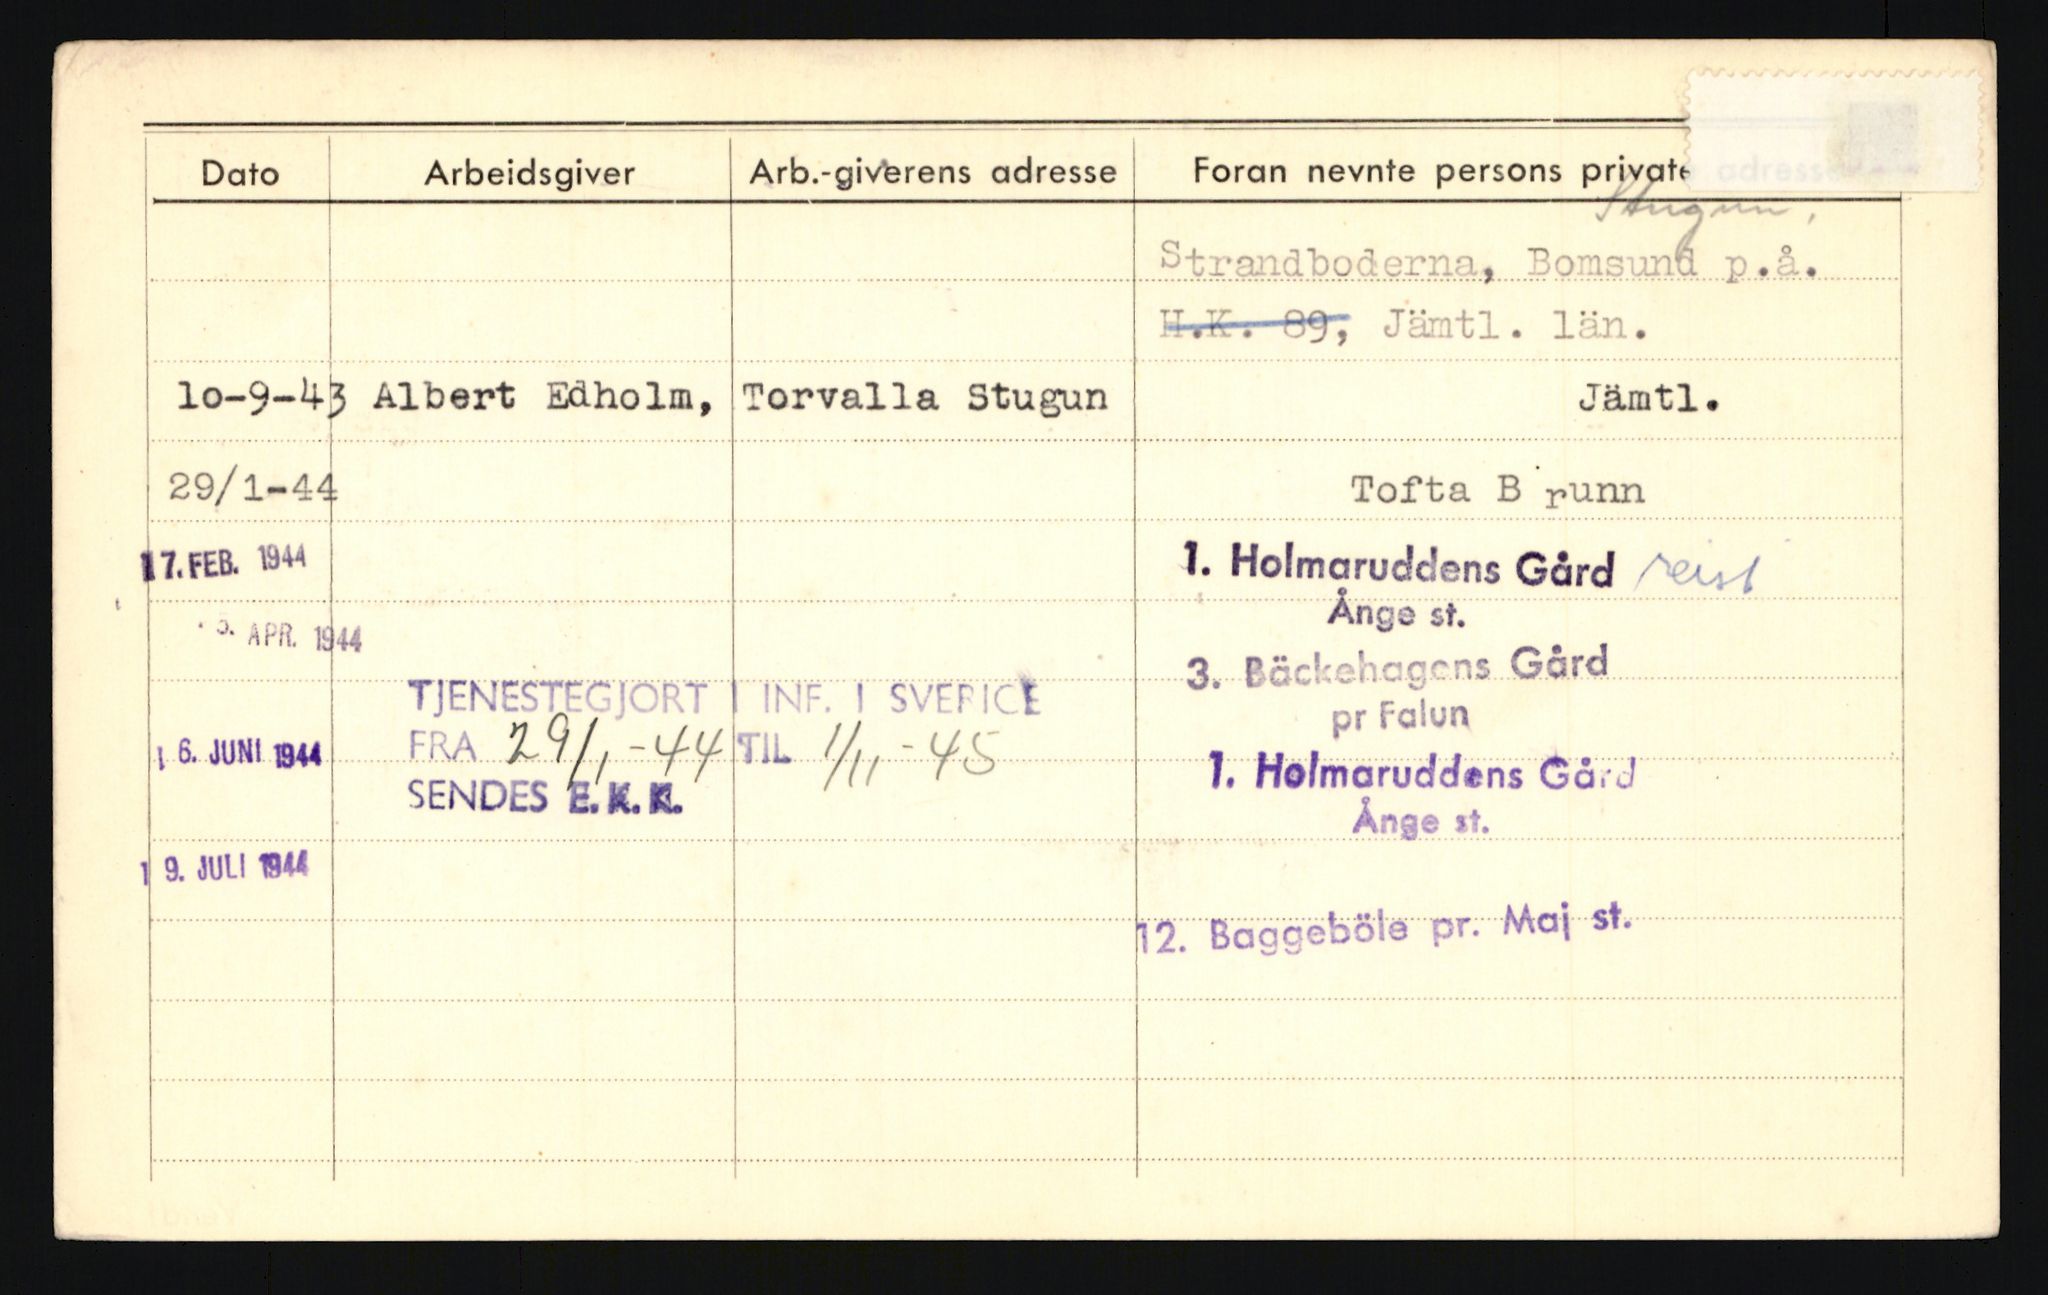 Dato Arbeidsgiver Arb.-giverens adresse Foran nevnte persons private adresse
Stugun.
Strandboderna, Bomsund p.å.
H.K. 89, Jämtl. län.
lo-9-43 Albert Edholm, Torvalla Stugun Jämtl.
29/1-44 Tofta Brunn
17. FEB. 1944 1. Holmaruddens Gård reist
Ånge st.
5. APR. 1944
3. Bäckehagens Gård
TJENESTEGJORT I INF. I SVERIGE
pr Falun
16. JUNI 1944 FRA 29/1-44 TIL 1/11-45
1. Holmaruddens Gård
SENDES E.K.K.
Ånge st.
19. JULI 1944
12. Baggeböle pr. Maj st.